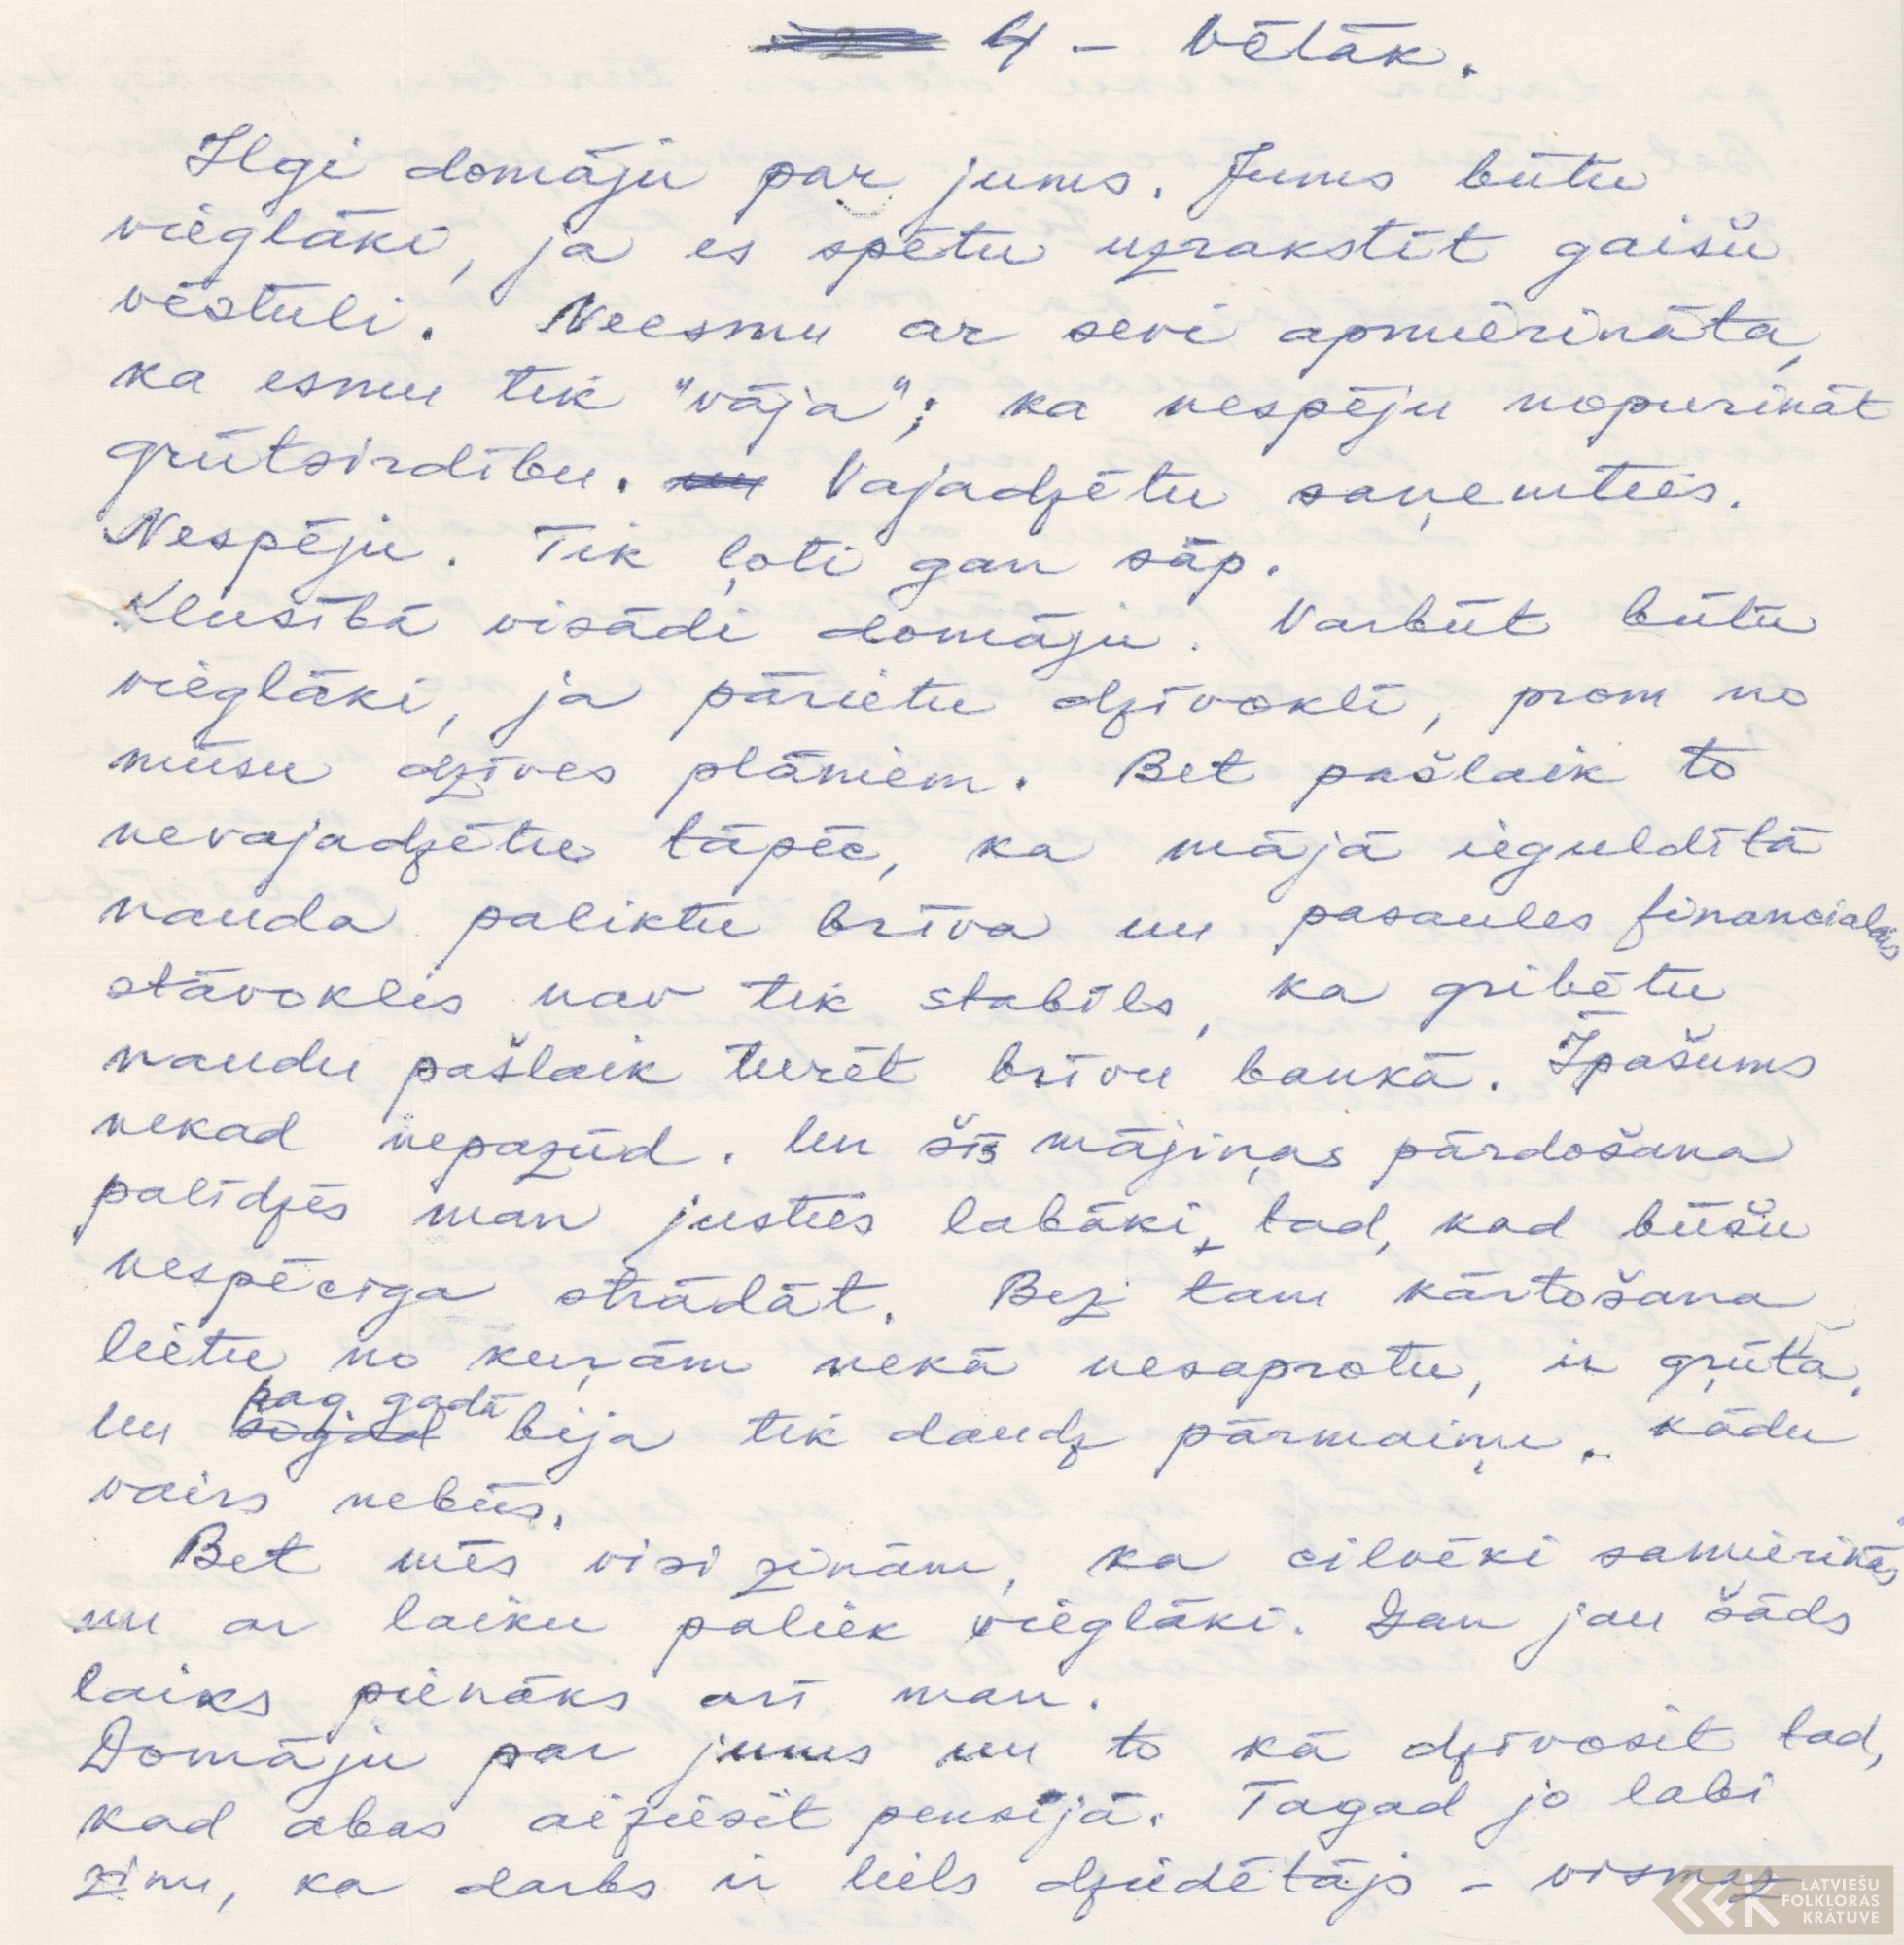 4 - vēlāk.
Ilgi domāju par jums. Jums būtu
vieglāki, ja es spētu uzrakstīt gaišu
vēstuli. Neesmu ar sevi apmierināta,
ka esmu tik "vāja"; ka nespēju nopurināt
grūtsirdību. un Vajadzētu saņemties.
Nespēju. Tik ļoti gan sāp.
Klusībā visādi domāju. Varbūt būtu
vieglāki, ja pārietu dzīvoklī, prom no
mūsu dzīves plāniem. Bet pašlaik to
nevajadzētu tāpēc, ka mājā ieguldītā
nauda paliktu brīva un pasaules financialais
stāvoklis nav tik stabīls, ka gribētu
naudu pašlaik turēt brīvu bankā. Īpašums
nekad nepazūd. Un šīs mājiņas pārdošana
palīdzēs man justies labāki, tad, kad būšu
nespēcīga strādāt. Bez tam kārtošana
lietu no kuŗām nekā nesaprotu, ir grūta,
pag. gadā
un šogad bija tik daudz pārmaiņu. kādu
vairs nebūs.
Bet mēs visi zinām, ka cilvēki samierinās
un ar laiku paliek vieglāki. Gan jau šāds
laiks pienāks arī man.
Domāju par jums un to kā dzīvosit tad,
kad abas aiziesit pensijā. Tagad jo labi
zinu, ka darbs ir liels dziedētājs - vismaz
LATVIEŠU
FOLKLORAS
KRĀTUVE